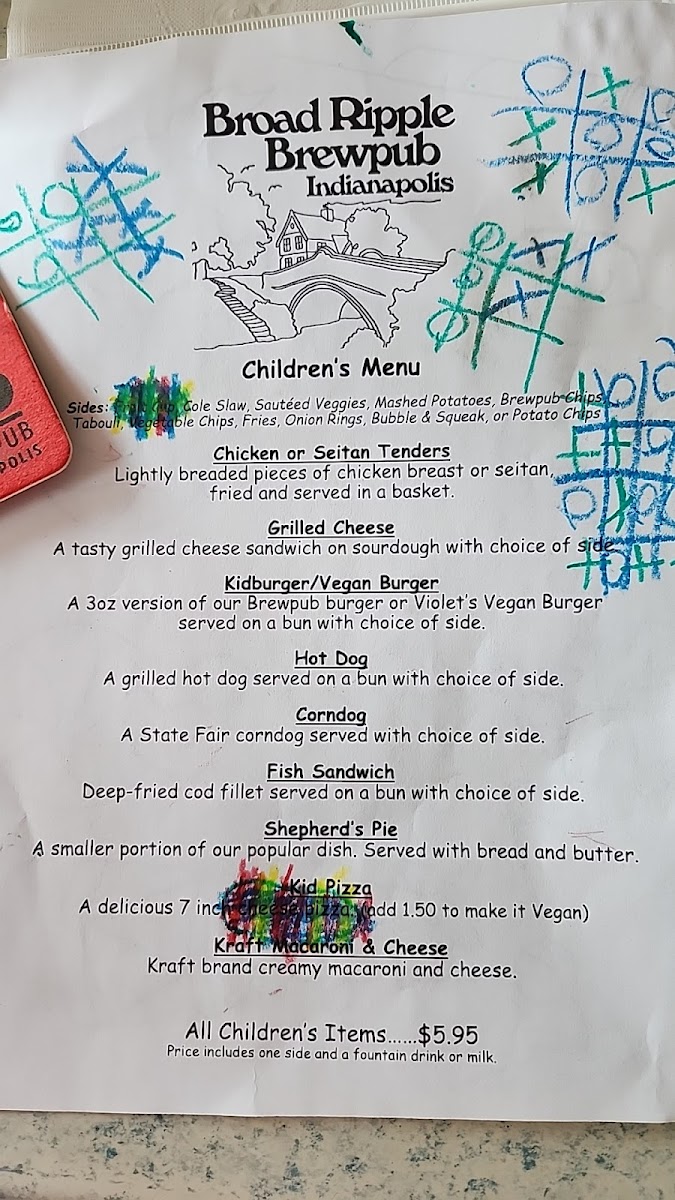 Broad Ripple
Brewpub
Indianapolis
Children's Menu
Sides: Cole Slaw, Sautéed Veggies, Mashed Potatoes, Brewpub Chips,
Tabouli, Vegetable Chips, Fries, Onion Rings, Bubble & Squeak, or Potato Chips
PUB
POLIS
Chicken or Seitan Tenders
Lightly breaded pieces of chicken breast or seitan,
fried and served in a basket.
Grilled Cheese
A tasty grilled cheese sandwich on sourdough with choice of side.
Kidburger/Vegan Burger
A 3oz version of our Brewpub burger or Violet's Vegan Burger
served on a bun with choice of side.
Hot Dog
A grilled hot dog served on a bun with choice of side.
Corndog
A State Fair corndog served with choice of side.
Fish Sandwich
Deep-fried cod fillet served on a bun with choice of side.
Shepherd's Pie
A smaller portion of our popular dish. Served with bread and butter.
Kid Pizza
A delicious 7 inch cheese pizza. (add 1.50 to make it Vegan)
Kraft Macaroni & Cheese
Kraft brand creamy macaroni and cheese.
All Children's Items......$5.95
Price includes one side and a fountain drink or milk.